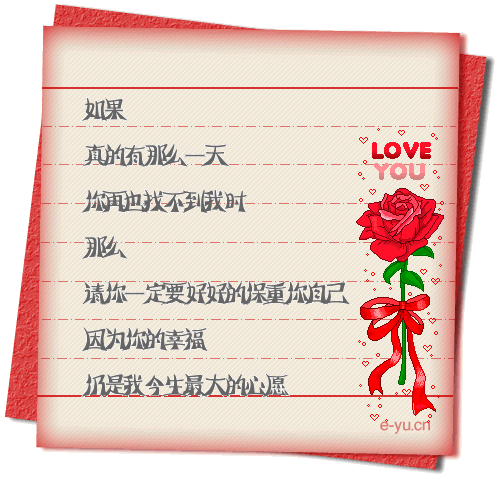 如果
真的有那么一天
你再也找不到我时
那么
请你一定要好好的保重你自己
因为你的幸福
仍是我今生最大的心愿
LOVE
YOU
e-yu.cn